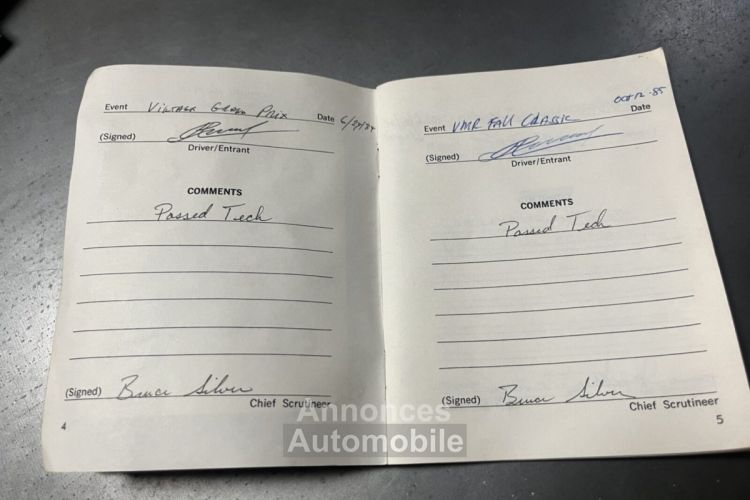 Event Vintage Grand Prix Date
(Signed)
Driver/Entrant
COMMENTS
Passed Tech
(Signed) Bruce Silver
Chief Scrutineer
4
Event VMR FALL CLASSIC OCT 12-85
Date
(Signed)
Driver/Entrant
COMMENTS
Passed Tech
(Signed) Bruce Silver
Chief Scrutineer
5
Annonces
Automobile